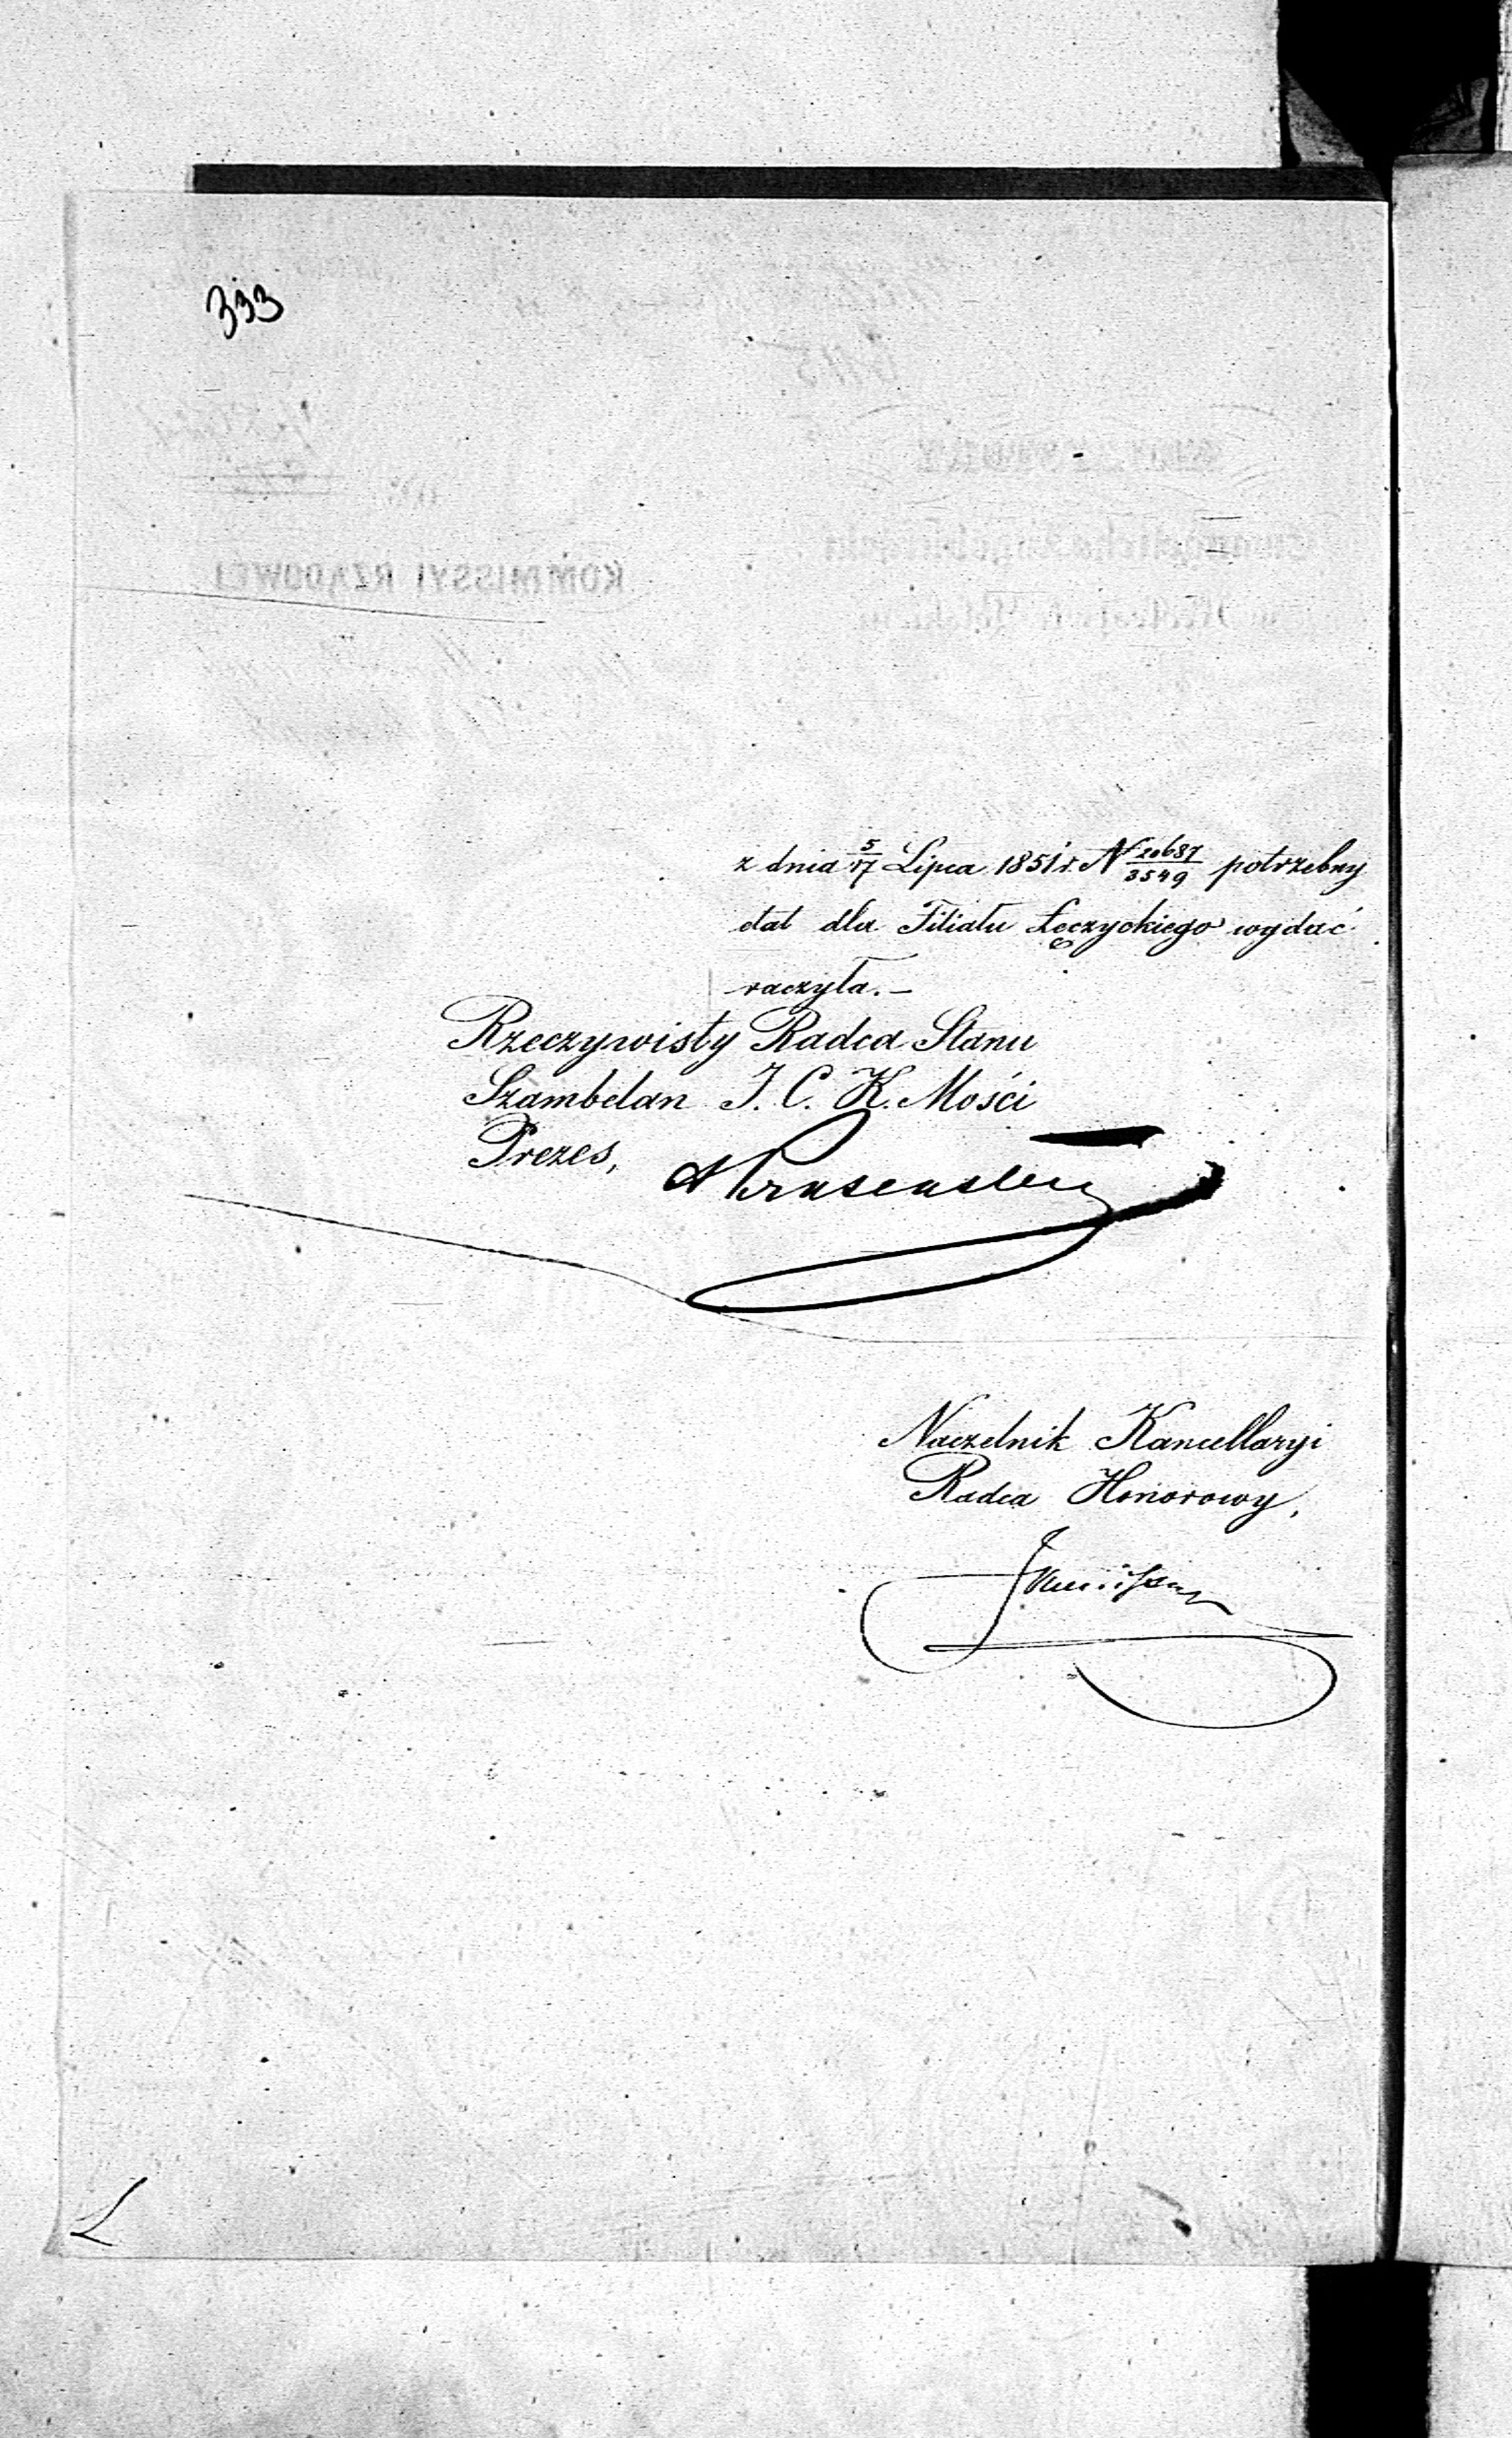 333
z dnia 5/17 Lipca 1851 r. N 20687/3549 potrzebny
etat dla Filiału Łęczyckiego wydać
raczyła.—
Rzeczywisty Radca Stanu
Szambelan J. C. K. Mości
Prezes,
Naczelnik Kancellaryi
Radca Honorowy,
KOMMISSYI RZĄDOWEJ